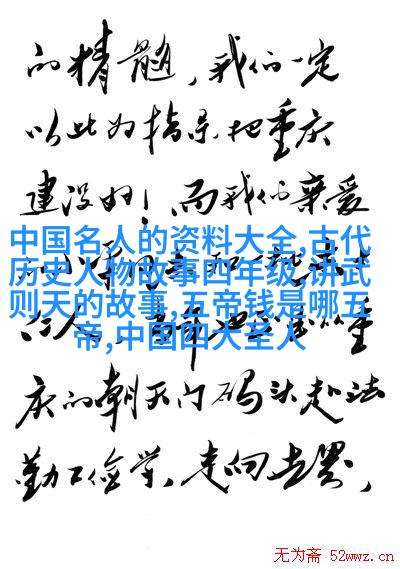 的精髓，我们一定
以此为指导把重庆
建设好！而我们亲爱
中国名人的资料大全,古代
历史人物故事四年级,讲武
则天的故事,五帝钱是哪五
帝,中国四大圣人
重
庆的朝天门码头赴法
勤工俭学，走向世界，
无为斋 52wwz.cn